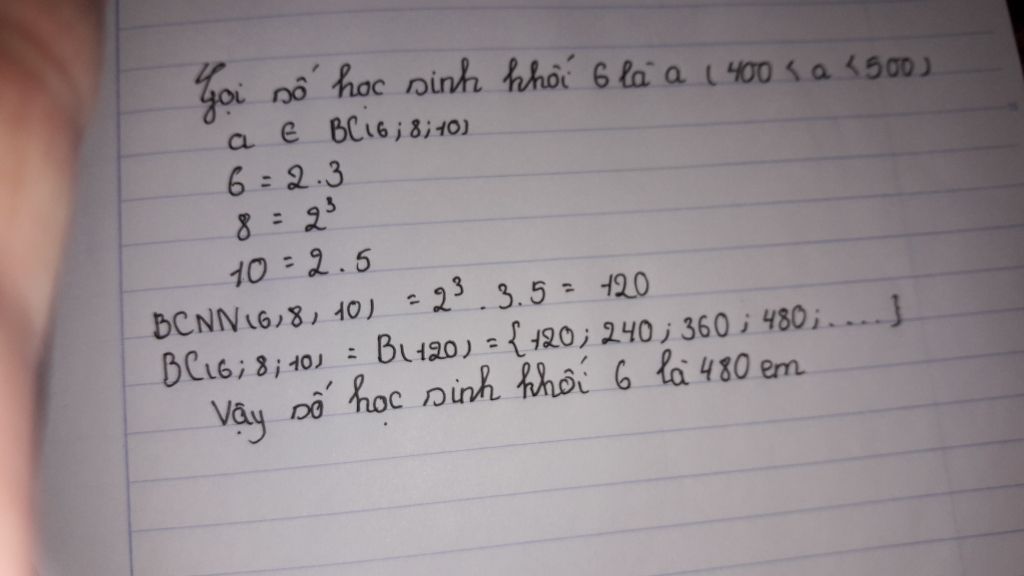 Gọi số học sinh khối 6 là a (400 < a < 500)
a ∈ BC(6; 8; 10)
6 = 2.3
8 = 2³
10 = 2.5
BCNN(6, 8, 10) = 2³.3.5 = 120
BC(6; 8; 10) = B(120) = {120; 240; 360; 480; ....}
Vậy số học sinh khối 6 là 480 em